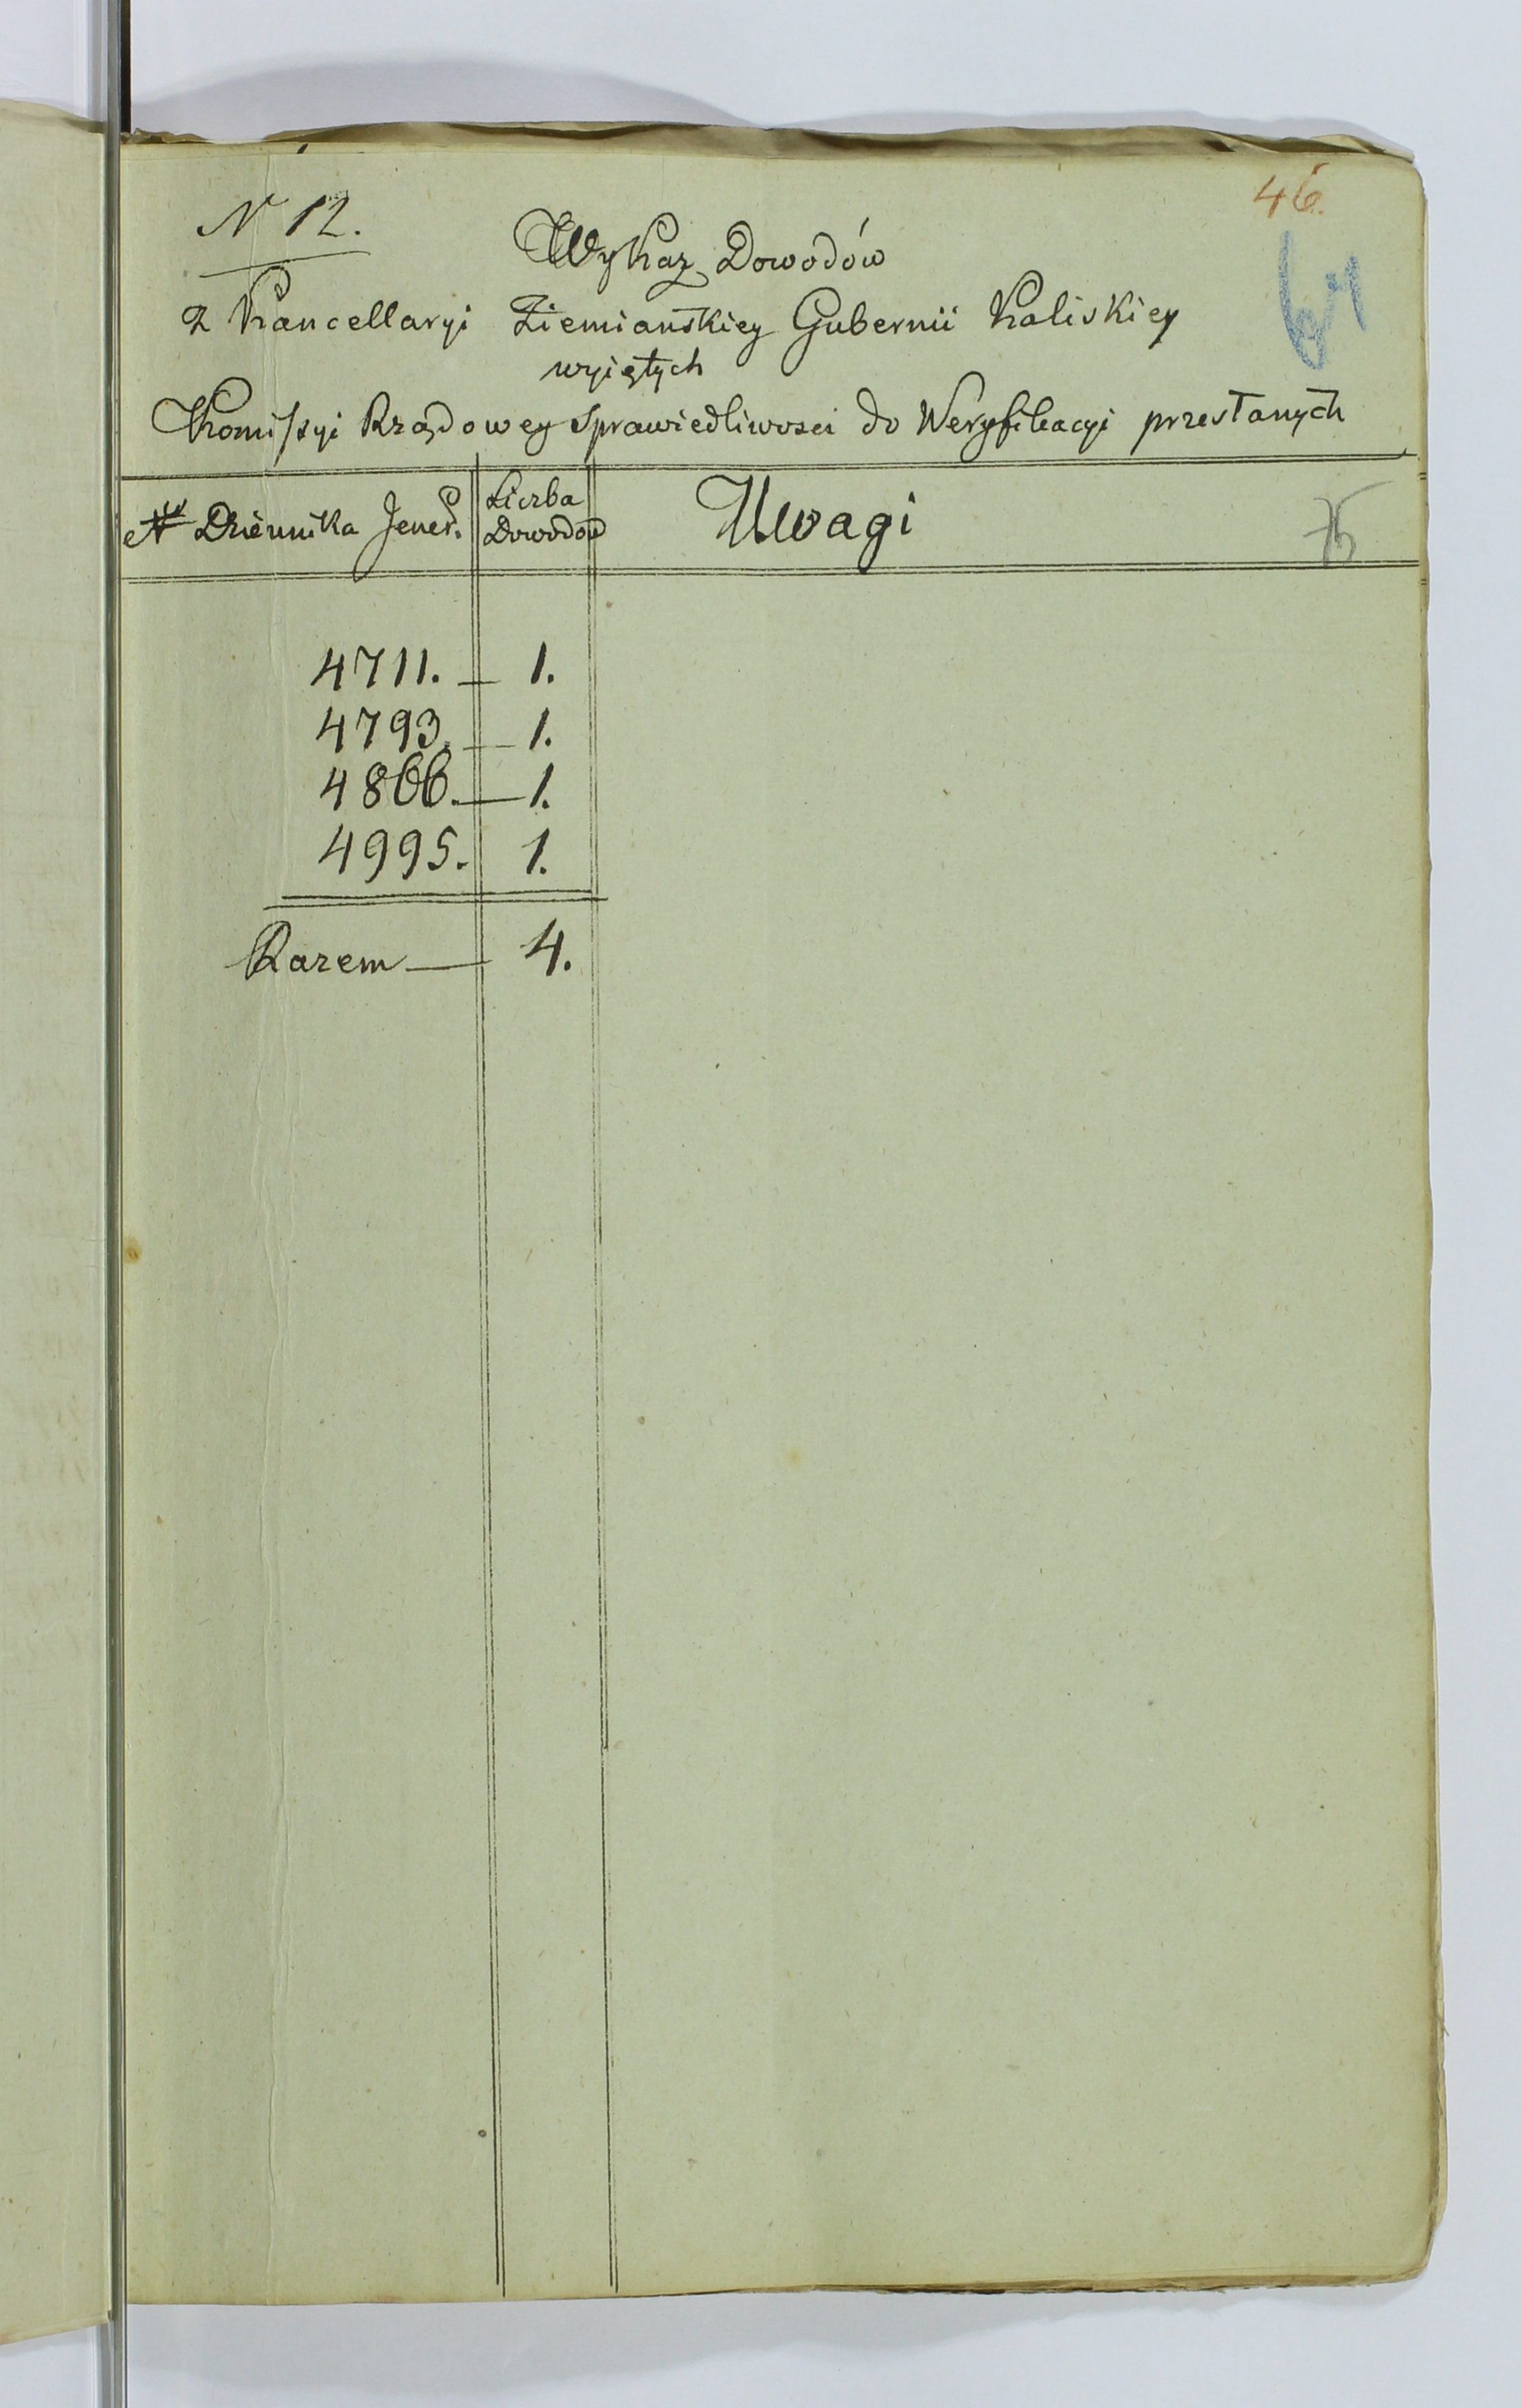 46.
N 12.
Wykaz Dowodów
z Kancellaryi Ziemiańskiey Gubernii Kaliskiey
wyiętych
Komissyi Rządowey Sprawiedliwosci do Weryfikacyi przesłanych
61
N Dziennika Jener. Liczba Dowodów Uwagi
75
4711. — 1.
4793. — 1.
4866. — 1.
4995. 1.
Razem — 4.